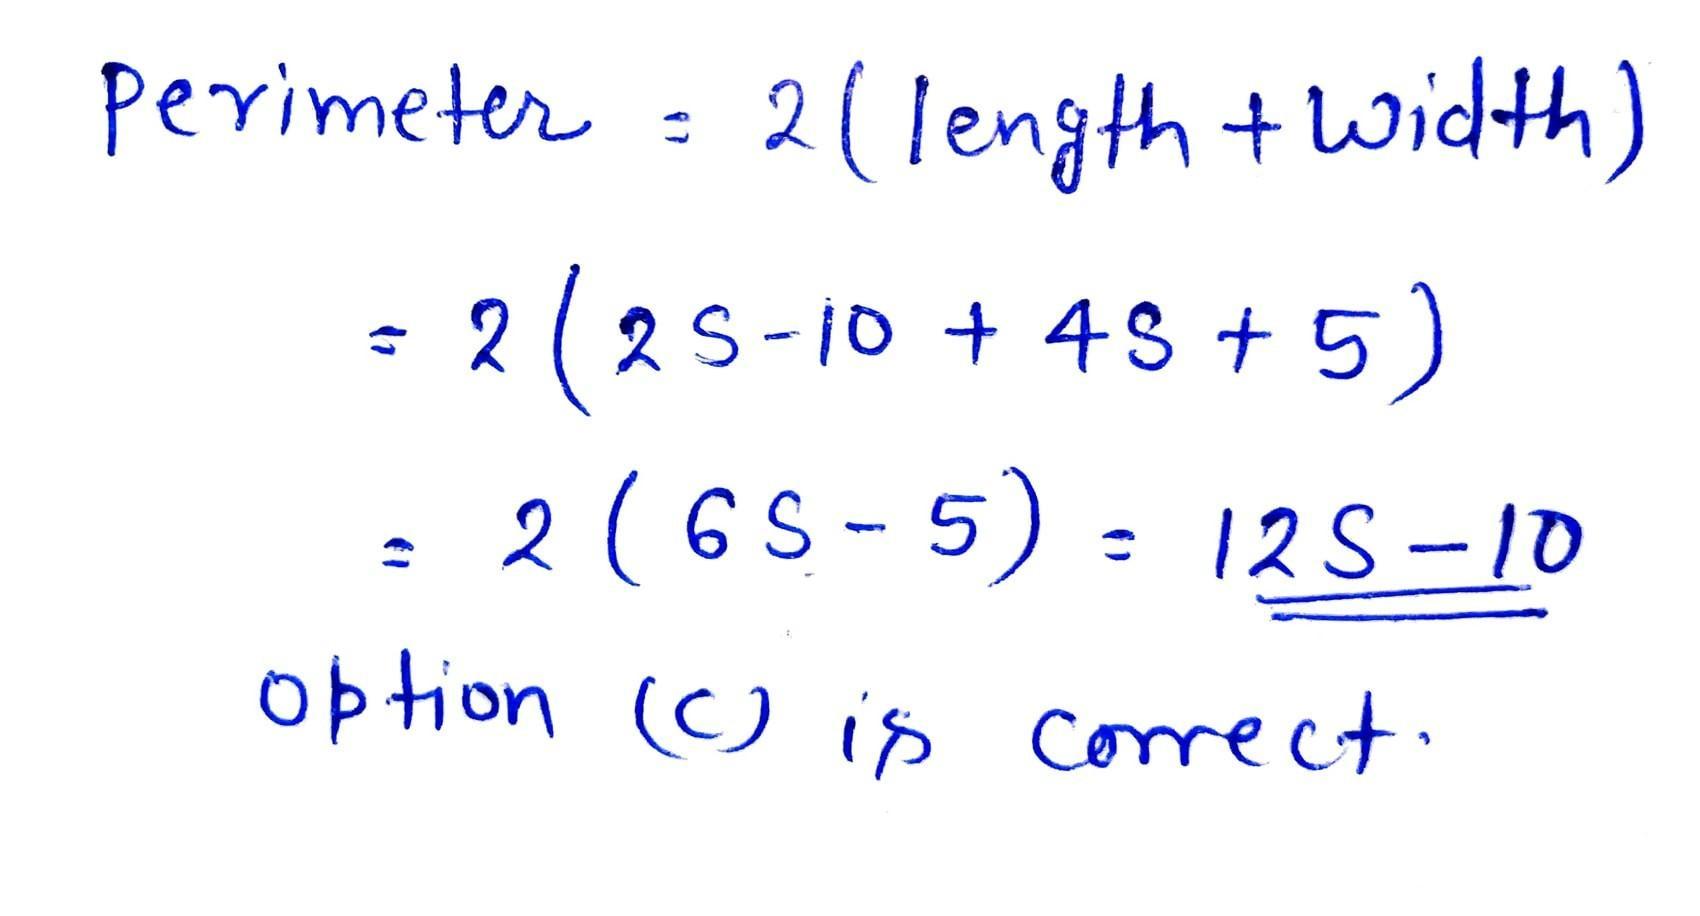 Perimeter = 2(length + width)
= 2(2S-10 + 4S + 5)
= 2(6S-5) = 12S-10
option (C) is correct.